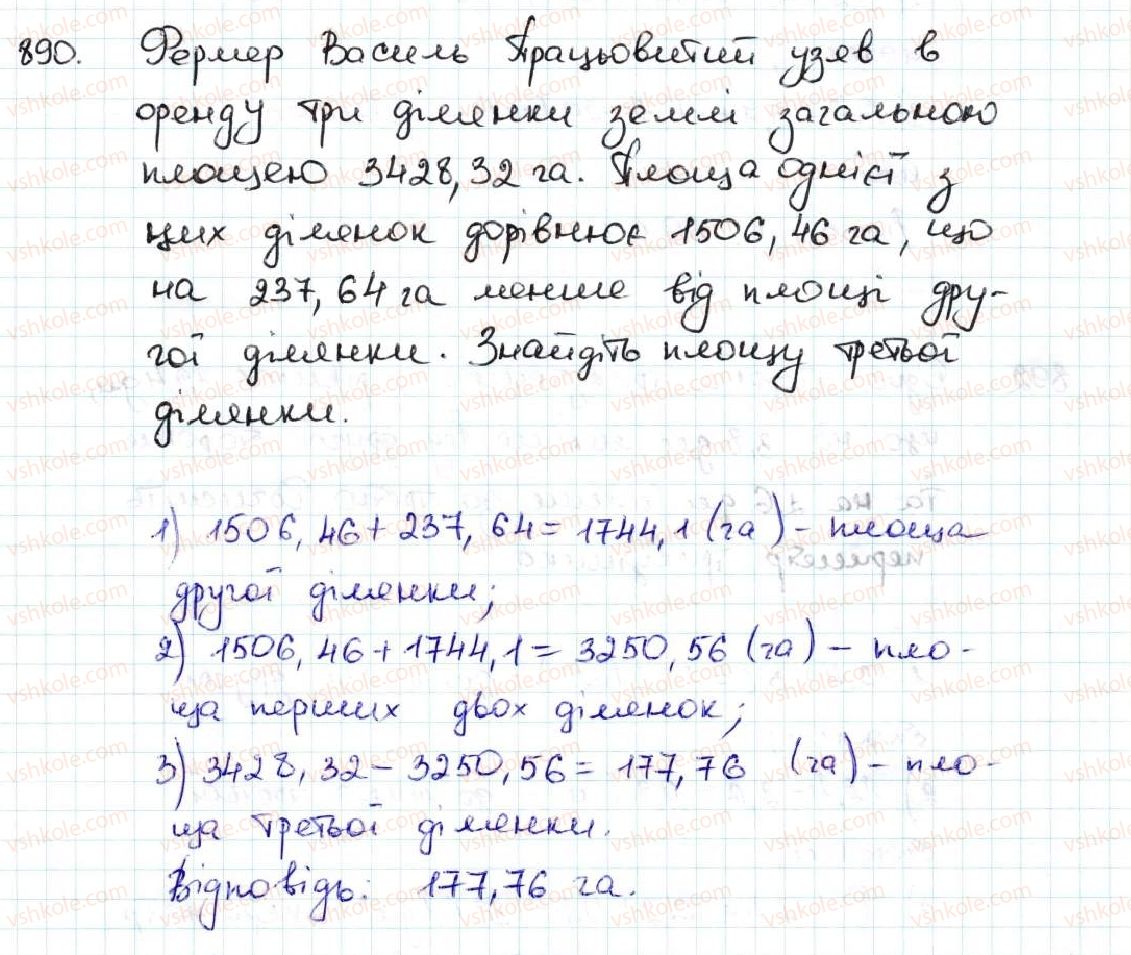 890. Фермер Василь Працьовитий узяв в
оренду три ділянки землі загальною
площею 3428,32 га. Площа однієї з
цих ділянок дорівнює 1506,46 га, що
на 237,64 га менше від площі дру-
гої ділянки. Знайдіть площу третьої
ділянки.
1) 1506,46 + 237,64 = 1744,1 (га) - площа
другої ділянки;
2) 1506,46 + 1744,1 = 3250,56 (га) - пло-
ща перших двох ділянок;
3) 3428,32 - 3250,56 = 177,76 (га) - пло-
ща третьої ділянки.
Відповідь: 177,76 га.